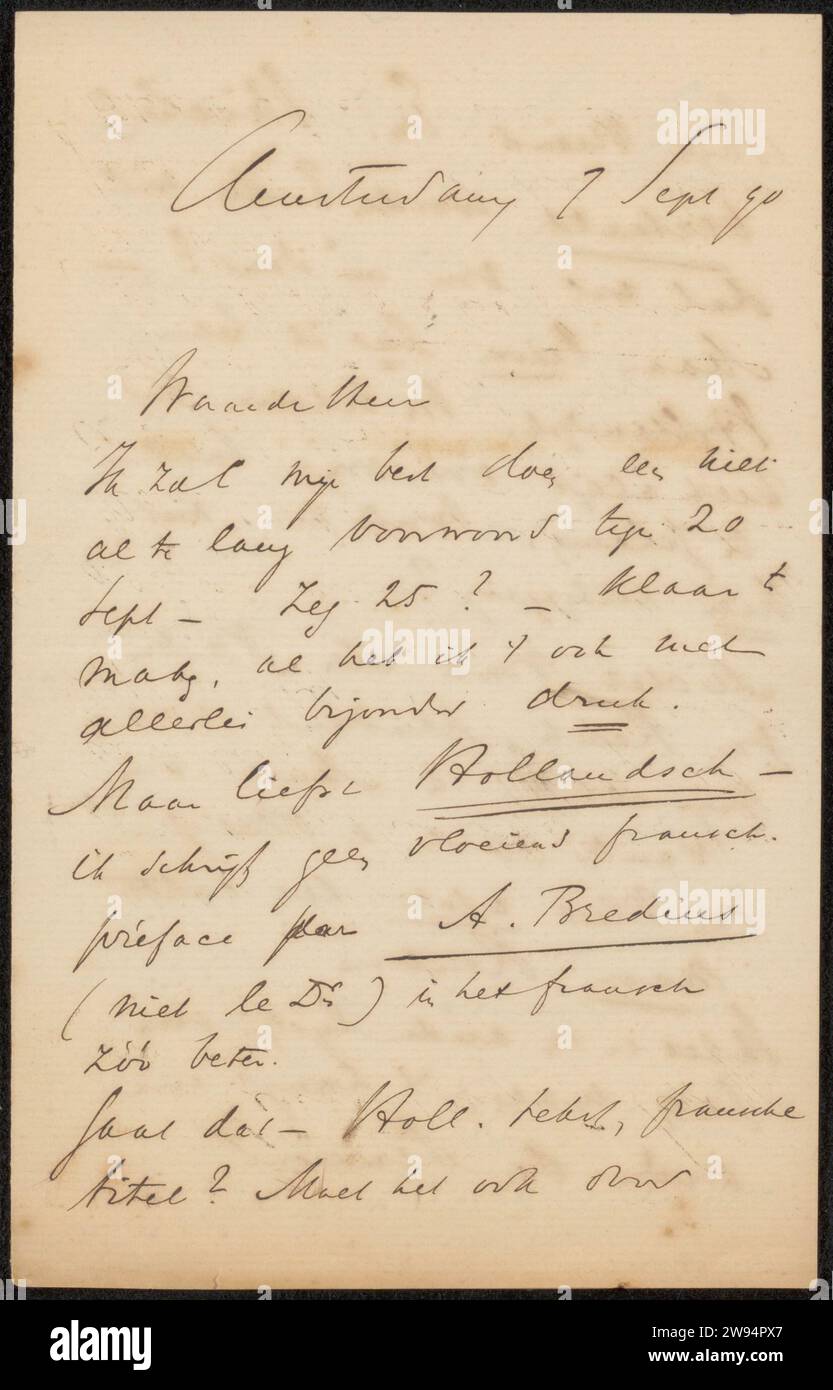 Amsterdam 7 Sept 90
Waarde Heer
Ik zal mijn best doen een niet
al te lang voorwoord tegen 20
Sept – Zeg 25? – klaar te
maken, al heb ik 't ook met
allerlei bijzonder druk.
Maar liefst Hollandsch –
ik schrijf geen vloeiend fransch.
préface par A. Bredius
(niet le Dr) in het fransch
zóó beter.
Gaat dat – Holl. tekst, fransche
titel? Moet het ook over
alamy
Image ID: 2W94PX7
www.alamy.com